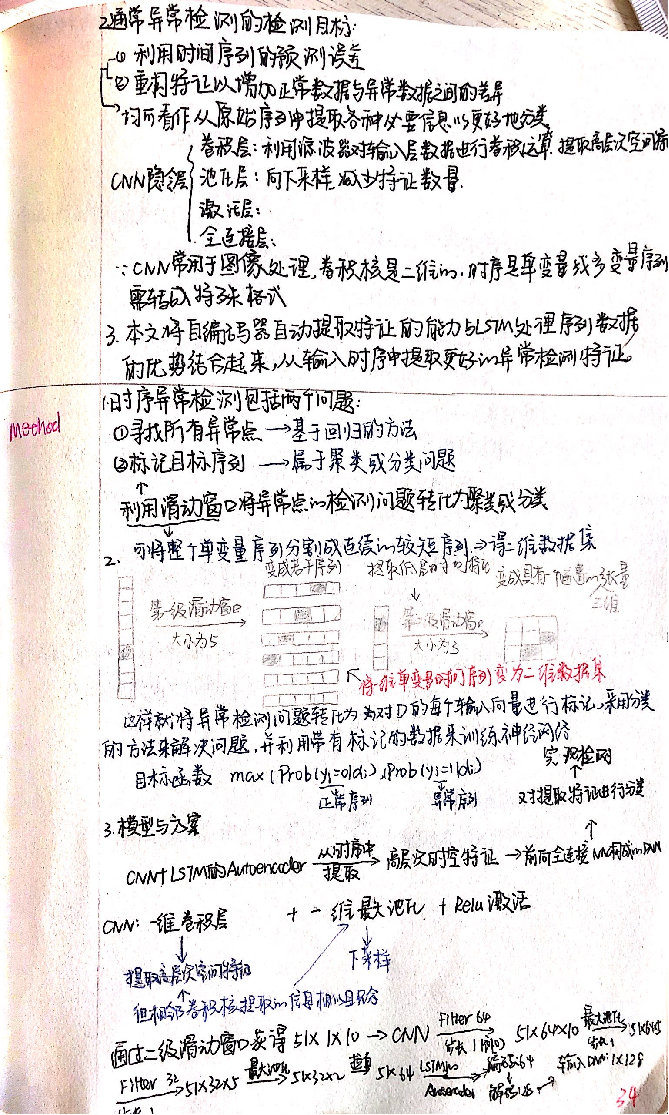 2.通常异常检测的检测目标:
① 利用时间序列的预测误差
② 重构特征以增加正常数据与异常数据之间的差异
均可看作从原始序列中提取各种必要信息以更好地分类
CNN隐层
卷积层:利用滤波器对输入层数据进行卷积运算 提取高层次空间
池化层:向下采样 减少特征数量
激活层:
全连接层:
∵CNN常用于图像处理,卷积核是二维的,时序是单变量或多变量序列
需转
格式
3.本文将自编码器自动提取特征的能力与LSTM处理序列数据
的优势结合起来,从输入时序中提取更好的异常检测特征。
Method
1.时序异常检测包括两个问题:
①寻找所有异常点 →基于回归的方法
②标记目标序列 →属于聚类或分类问题
利用滑动窗口将异常点的检测问题转化为聚类或分类
2. 可将整个单变量序列分割成连续的较短序列→得二维数据集
变成若干序列
变成具有
张量
三维
第一级滑动窗口
大小为5
第二级滑动窗口
大小为3
单变量时间序列变为二维数据集
这样就将异常检测问题转化为为对D的每个输入向量进行标记,采用分类
的方法来解决问题,并利用带有标记的数据来训练神经网络
目标函数 max(Prob(yi=0|di),Prob(yi=1|di)
正常序列 异常序列
完成检测
对提取特征进行分类
3.模型与方案
CNN+LSTM的Autoencoder 从时序中提取→ 高层次时空特征 →前向全连接NN构成的DNN
CNN: 一维卷积层 + 一维最大池化 + Relu激活
提取高层次空间特征
下采样
但相邻卷积核提取的信息相似且冗余
通过二级滑动窗口获得 51×1×10 → CNN Filter 64 步长1 51×64×10 最大池化 步长1 51×64×5
Filter 32 → 51×32×5 最大池化→ 51×32×2 51×64 LSTM Autoencoder 编码64 输入DNN: 1×128
步长1
34